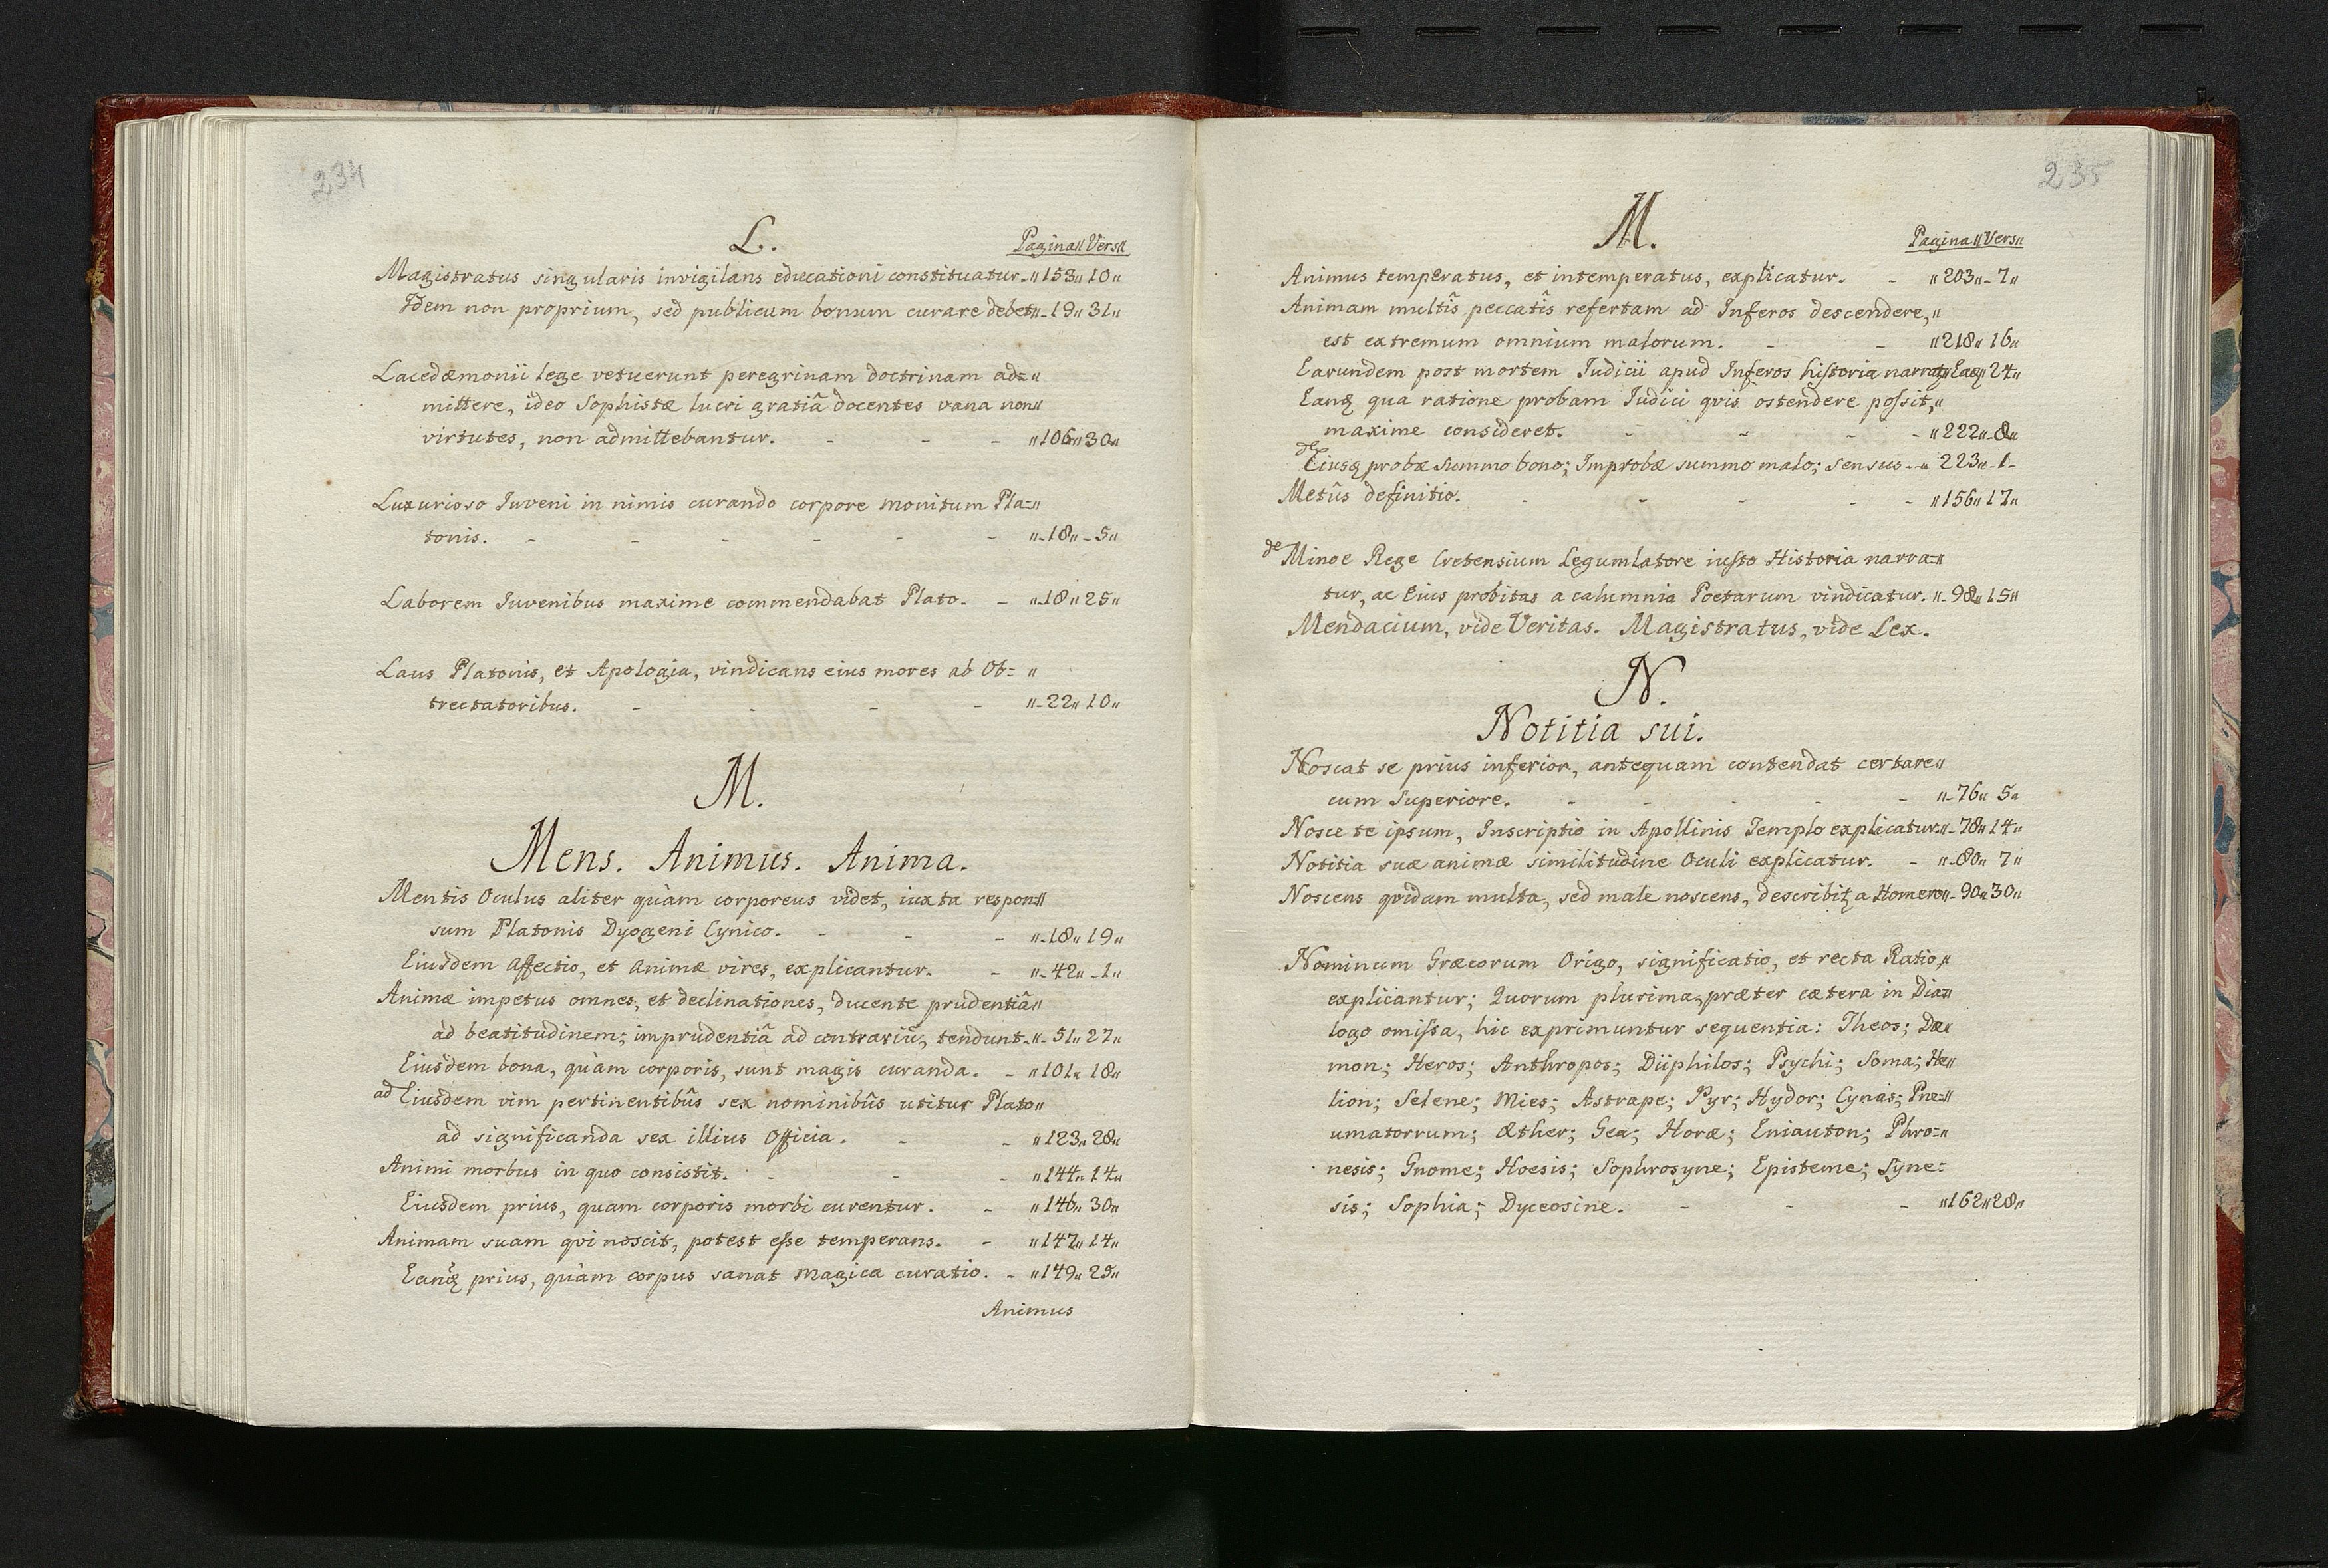 234
L.
Pagina〃 Vers〃
Magistratus singularis invigilans educationi constituatur-〃153〃10〃
Idem non proprium, sed publicum bonum curare debet〃-19〃31〃
Lacedæmonii lege vetuerunt peregrinam doctrinam ad=〃
mittere, ideo Sophistæ lucri gratiâ docentes vana non〃
virtutes, non admittebantur. - - - 〃106〃30〃
Luxurioso Iuveni in nimis curando corpore monitum Pla=〃
tonis. - - - - - - 〃-18〃-5〃
Laborem Iuvenibus maxime commendabat Plato. - 〃-18〃25〃
Laus Platonis, et Apologia, vindicans eius mores ab Ob= 〃
trectatoribus. - - - - 〃-22〃10〃
M.
Mens. Animus. Anima.
Mentis Oculus aliter quàm corporeus videt, iuxta respon=〃
sum Platonis Dyogeni Cynico. - - - 〃-18〃19〃
Eiusdem Affectio, et Animæ vires, explicantur. - 〃-42〃-1〃
Animæ impetus omnes, et declinationes, ducente prudentiâ〃
ad beatitudinem; imprudentiâ ad contrariū, tendunt-〃-51〃27〃
Eiusdem bona, quàm corporis, sunt magis curanda. - 〃101〃18〃
ad Eiusdem vim pertinentibûs sex nominibûs utitur Plato〃
ad significanda sex illius Officia. - - 〃123〃28〃
Animi morbus in quo consistit. - - - 〃144〃14〃
Eiusdem prius, quam corporis morbi curentur. - 〃146〃30〃
Animam suam qvi noscit, potest eſse temperans. - 〃147〃14〃
Eanꝗ prius, quàm corpus sanat Magica curatio. - 〃149〃29〃
Animus
235
M.
Pagina〃Vers〃
Animus temperatus, et intemperatus, explicatur. - 〃203〃-7〃
Animam multîs peccatîs refertam ad Inferos descendere,〃
est extremum omnium malorum. - - 〃218〃16〃
Earundem post mortem Iudicii apud Inferos hiſtoria 24〃
Eanꝗ qua ratione probam Iudici qvis ostendere poſsit,〃
maxime consideret. - - - - 〃222〃-8〃
de Eiusꝗ probæ summo bono; Improbæ summo malo; sensus-〃 223〃-1-
Metûs definitio. - - - - - 〃156〃17〃
de Minoe Rege Cretensium Legumlatore iuſto Historia narra=〃
tur, ac Eius probitas a calumnia Poetarum vindicatur. 〃-98〃15〃
Mendacium, vide Veritas. Magistratus, vide Lex.
N.
Notitia sui.
Noscat se prius inferior, antequam contendat certare〃
cum Superiore. - - - - - 〃-76〃 5〃
Nosce te ipsum, Inscriptio in Apollinis Templo explicatur〃-78〃14〃
Notitia suæ animæ similitudine Oculi explicatur. - 〃-80〃 7〃
Noscens qvidam multa, sed male noscens, describitꝛ a Homero〃-90〃30〃
Nominum Græcorum Origo, significatio, et recta Ratio,〃
explicantur; Quorum plurima, præter cætera in Dia=〃
logo omiſsa, hic exprimuntur sequentia: Theos; Dæ〃
mon; Heros; Anthropos; Diiphilos; Psychi; Soma; He〃
lion; Selene; Mies; Astrape; Pyr; Hydor; Cynas; Pne=〃
umatorrum; Æther; Gea; Horæ; Eniauton; Phro=〃
nesis; Gnome; Hoesis; Sophrosyne; Episteme; Syne=
sis; Sophia; Dyceosine. - - - 〃162〃28〃